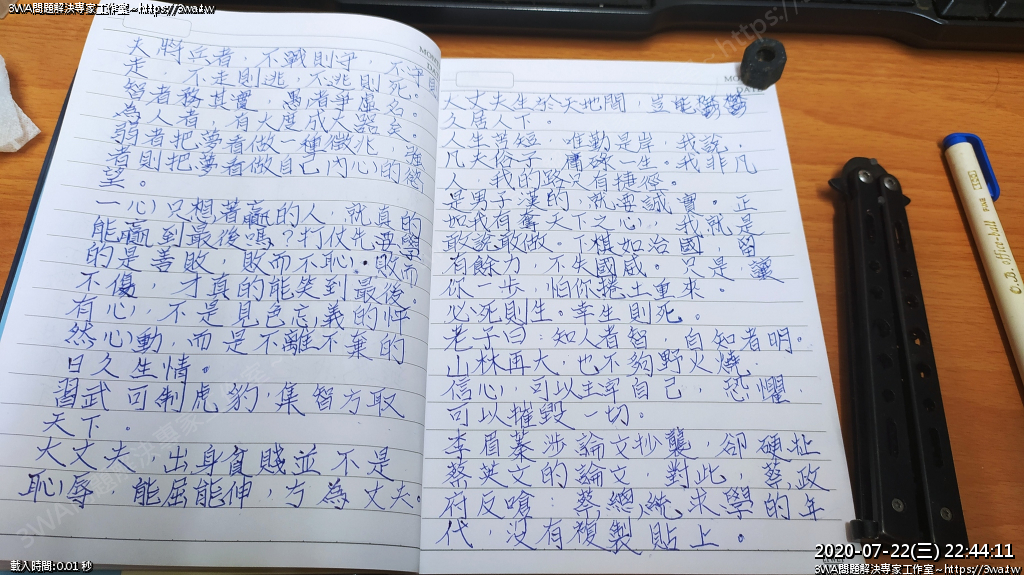 3WA問題解決專家工作室~https://3wa.tw
3WA問題解決專家工作室~https://3wa.tw
夫將兵者，不戰則守，不守則
走，不走則逃，不逃則死。
智者務其實，愚者爭虛名。
為人者，有大度成大器矣。
弱者把夢看做一種徵兆，強
者則把夢看做自己內心的慾
望。
一心只想著贏的人，就真的
能贏到最後嗎？打仗先要學
的是善敗，敗而不恥，敗而
不傷，才真的能笑到最後。
有心，不是見色忘義的怦
然心動，而是不離不棄的
日久生情。
習武可制虎豹，集智方取
天下。
大丈夫，出身貧賤並不是
恥辱，能屈能伸，方為丈夫。
DATE
大丈夫生於天地間，豈能鬱鬱
久居人下。
人生苦短，唯勤是岸，我說，
凡夫俗子，庸碌一生。我非凡
人，我的路只有捷徑。
是男子漢的，就要誠實。正
如我有奪天下之心，我就是
敢說敢做。下棋如治國，留
有餘力，不失國威。只是，讓
你一步，怕你捲土重來。
必死則生。幸生則死。
老子曰：知人者智，自知者明。
山林再大，也不夠野火燒，
信心，可以主宰自己，恐懼，
可以摧毀一切。
李眉蓁涉論文抄襲，卻硬扯
蔡英文的論文，對此，蔡政
府反嗆：蔡總統求學的年
代，沒有複製貼上。
O.B. office-ball
FINE
載入時間:0.01 秒
2020-07-22(三) 22:44:11
3WA問題解決專家工作室~https://3wa.tw